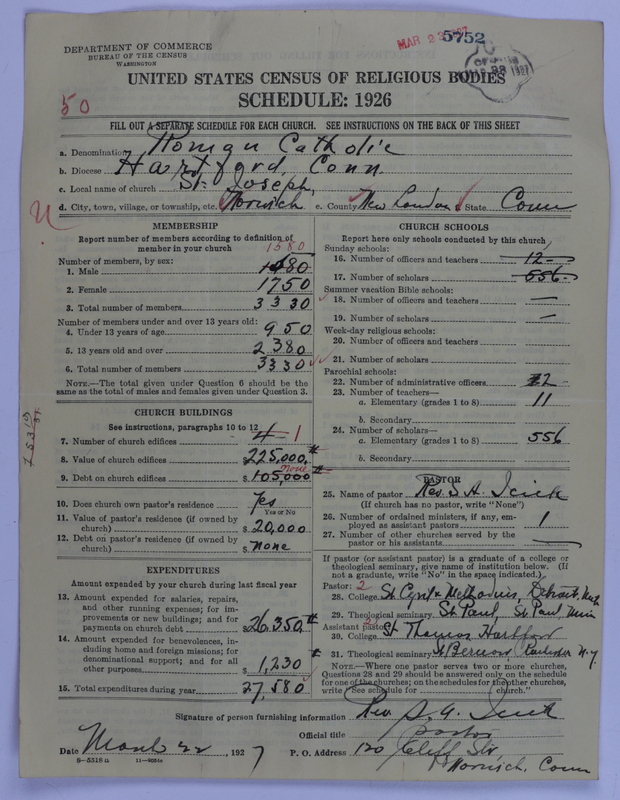 DEPARTMENT OF COMMERCE
BUREAU OF THE CENSUS
WASHINGTON
MAR 23
5752
UNITED STATES CENSUS OF RELIGIOUS BODIES
SCHEDULE: 1926
50
FILL OUT A SEPARATE SCHEDULE FOR EACH CHURCH. SEE INSTRUCTIONS ON THE BACK OF THIS SHEET
a. Denomination Roman Catholic
b. Diocese Hartford, Conn.
c. Local name of church St. Joseph,
d. City, town, village, or township, etc. Norwich e. County New London State Conn
MEMBERSHIP
Report number of members according to definition of member in your church
1580
Number of members, by sex:
1. Male 1480
2. Female 1750
3. Total number of members 3330
Number of members under and over 13 years old:
4. Under 13 years of age 950
5. 13 years old and over 2380
6. Total number of members 3330
NOTE.—The total given under Question 6 should be the same as the total of males and females given under Question 3.
CHURCH BUILDINGS
See instructions, paragraphs 10 to 12
7. Number of church edifices 4 1
8. Value of church edifices $225,000.
None
9. Debt on church edifices $105,000
10. Does church own pastor's residence Yes
Yes or No
11. Value of pastor's residence (if owned by church) $20,000
12. Debt on pastor's residence (if owned by church) $none
EXPENDITURES
Amount expended by your church during last fiscal year
13. Amount expended for salaries, repairs, and other running expenses; for improvements or new buildings; and for payments on church debt $26,350.
14. Amount expended for benevolences, including home and foreign missions; for denominational support; and for all other purposes $1,230
15. Total expenditures during year $27,580
CHURCH SCHOOLS
Report here only schools conducted by this church
Sunday schools:
16. Number of officers and teachers 12
17. Number of scholars 556
Summer vacation Bible schools:
18. Number of officers and teachers —
19. Number of scholars —
Week-day religious schools:
20. Number of officers and teachers
21. Number of scholars
Parochial schools:
22. Number of administrative officers
23. Number of teachers—
a. Elementary (grades 1 to 8) 11
b. Secondary
24. Number of scholars—
a. Elementary (grades 1 to 8) 556
b. Secondary
PASTOR
25. Name of pastor Rev. S. A.
(If church has no pastor, write "None")
26. Number of ordained ministers, if any, employed as assistant pastors 1
27. Number of other churches served by the pastor or his assistants —
If pastor (or assistant pastor) is a graduate of a college or theological seminary, give name of institution below. (If not a graduate, write "No" in the space indicated.)
Pastor: 2
28. College St. Cyril & Methodius, Detroit, Mich
29. Theological seminary St. Paul, St. Paul, Minn
Assistant pastor:
30. College St Thomas Hartford
31. Theological seminary St. Bernard Rochester N.Y.
NOTE.—Where one pastor serves two or more churches, Questions 28 and 29 should be answered only on the schedule for one of the churches; on the schedules for the other churches, write "See schedule for church."
Signature of person furnishing information Rev. S. A.
Official title pastor
Date March 22, 1927
P. O. Address 120 Cliff Str
Norwich, Conn
8-5518a